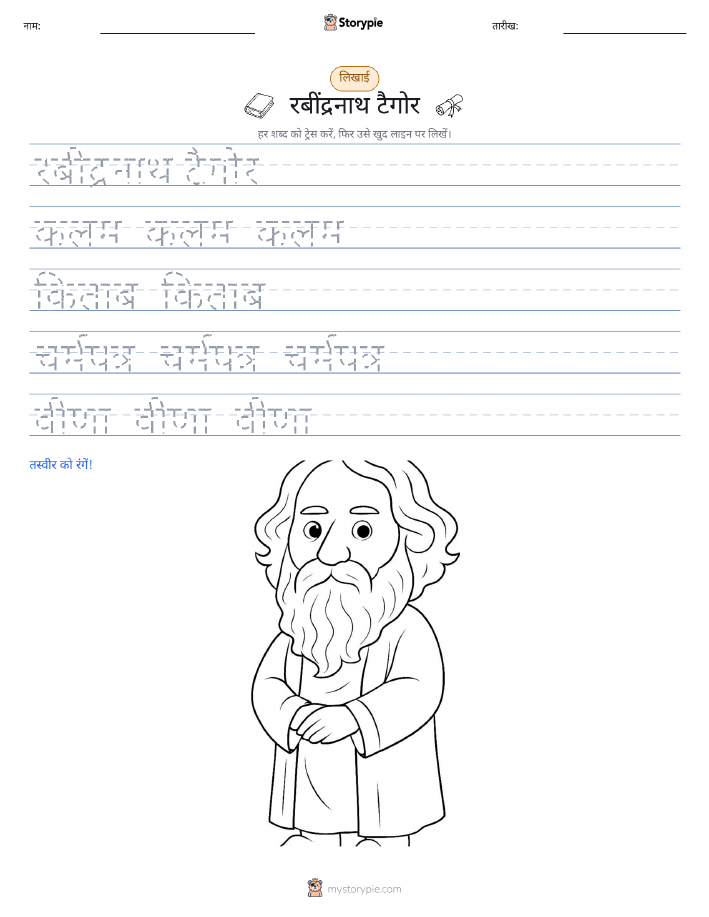 नाम: Storypie तारीख:
लिखाई
रबींद्रनाथ टैगोर
हर शब्द को ट्रेस करें, फिर उसे खुद लाइन पर लिखें।
रबींद्रनाथ टैगोर
कलम कलम कलम
किताब किताब
चर्मपत्र चर्मपत्र चर्मपत्र
वीणा वीणा वीणा
तस्वीर को रंगें!
mystorypie.com